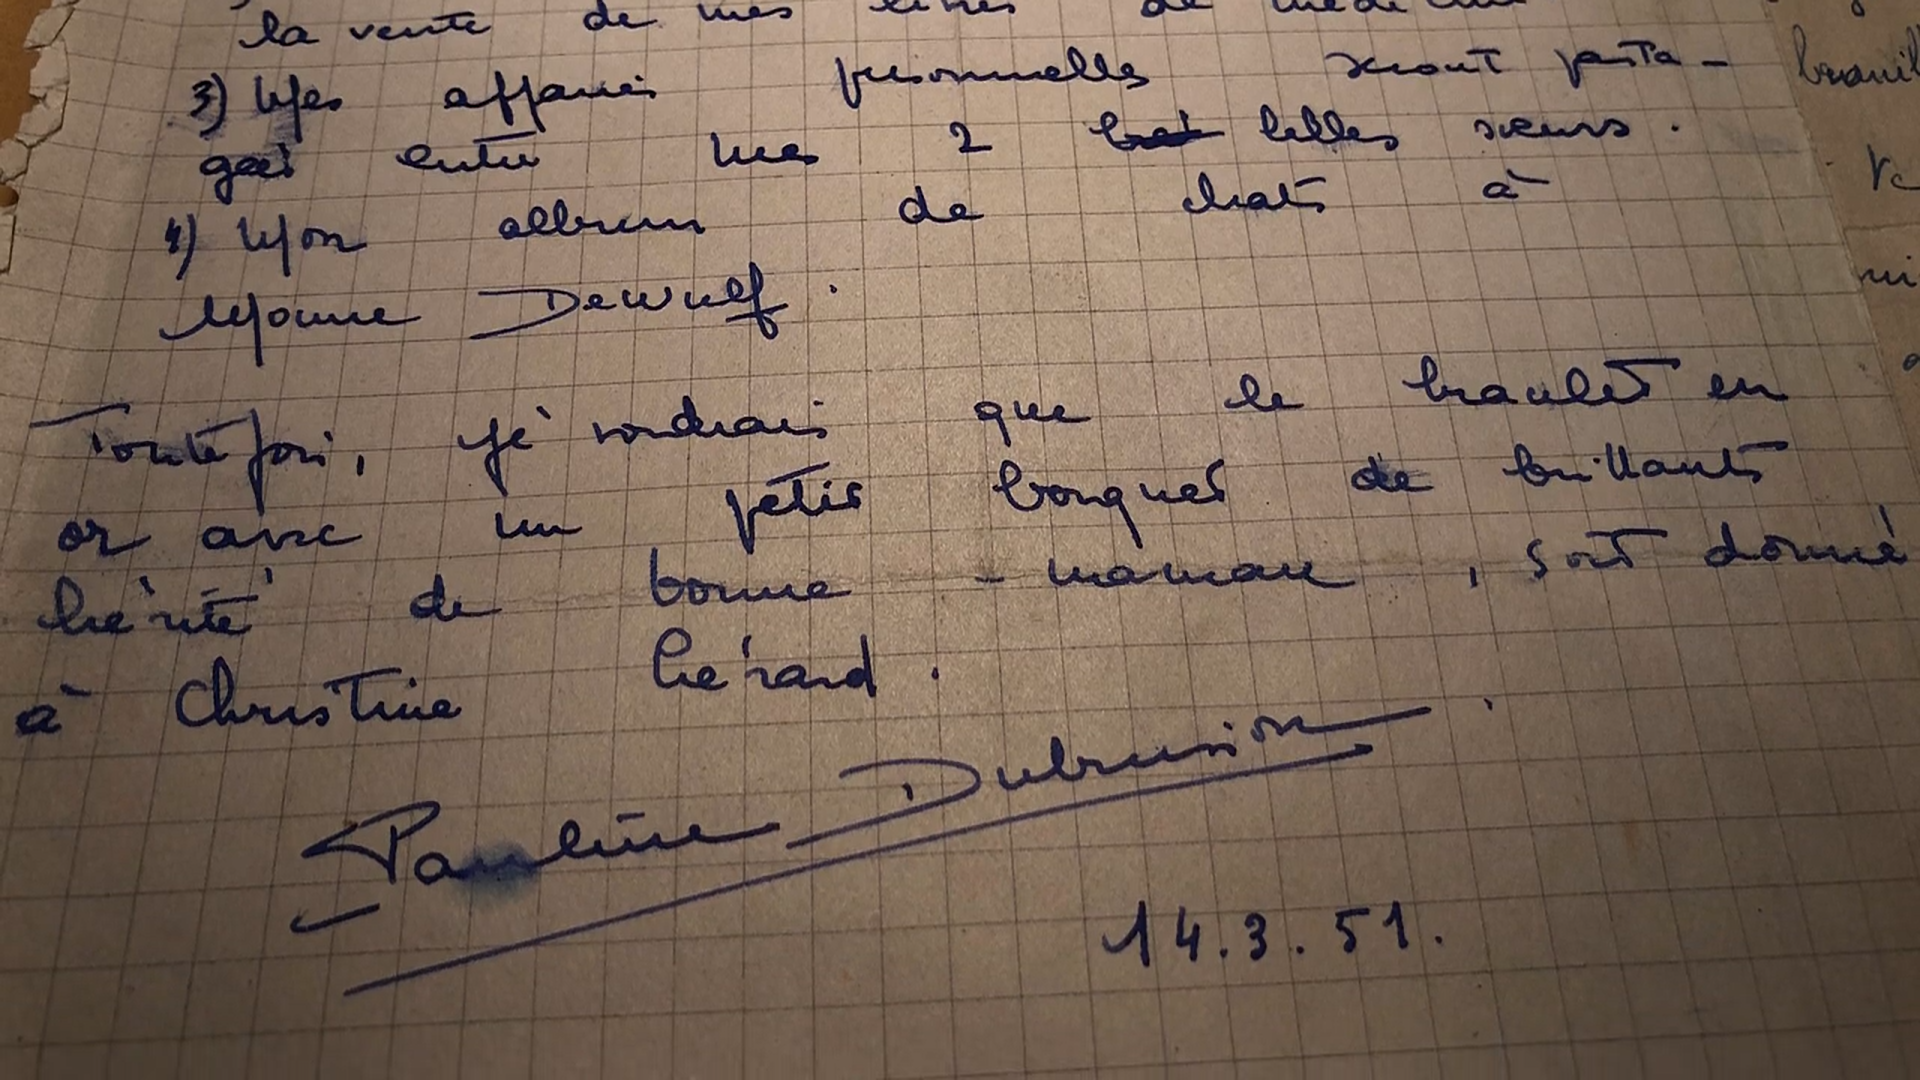 la vente de mes livres de médecine
3) Mes affaires personnelles seront parta-
gées entre mes 2 belles sœurs.
4) Mon album de chats à
Dewulf.
Toutefois, je voudrais que le bracelet en
or avec un petit bouquet de brillants
hérité de bonne-maman, soit donné
à Christine Hérard.
Pauline Dubuisson.
14.3.51.